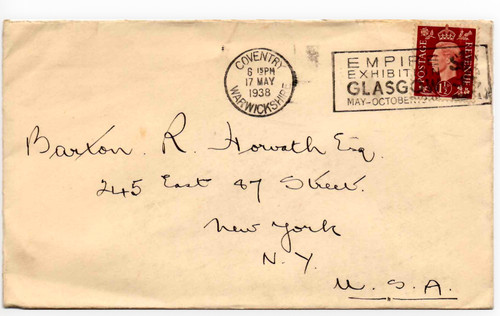 COVENTRY
6 15PM
17 MAY
1938
WARWICKSHIRE
EMPIRE
EXHIBIT
GLASG
MAY-OCTOBER
POSTAGE
REVENUE
1½
Barxon. R. Horvath Esq.
245 East 87 Street.
New York
N.Y.
U.S.A.